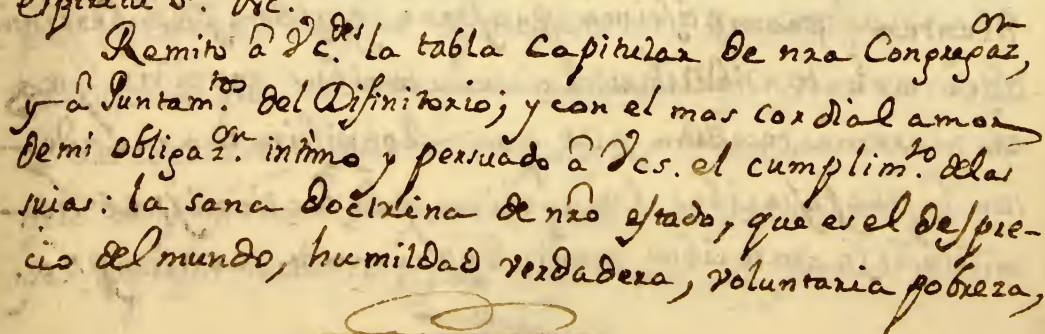 espiritu S. &c.
Remito â Vc.des la tabla Capitular de nra Congregaz.on,
y â Juntam.tos del Difinitorio; y con el mas cordial amor
de mi obligaz.on intimo y persuado â Vcs. el cumplim.to delas
suias: la sana doctrina de nro estado, que es el despre-
cio del mundo, humildad verdadera, voluntaria pobreza,